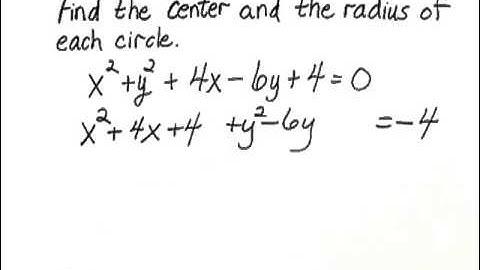 Find the center and the radius of
each circle.
x²+y²+4x-6y+4=0
x²+4x+4 +y²-6y =-4